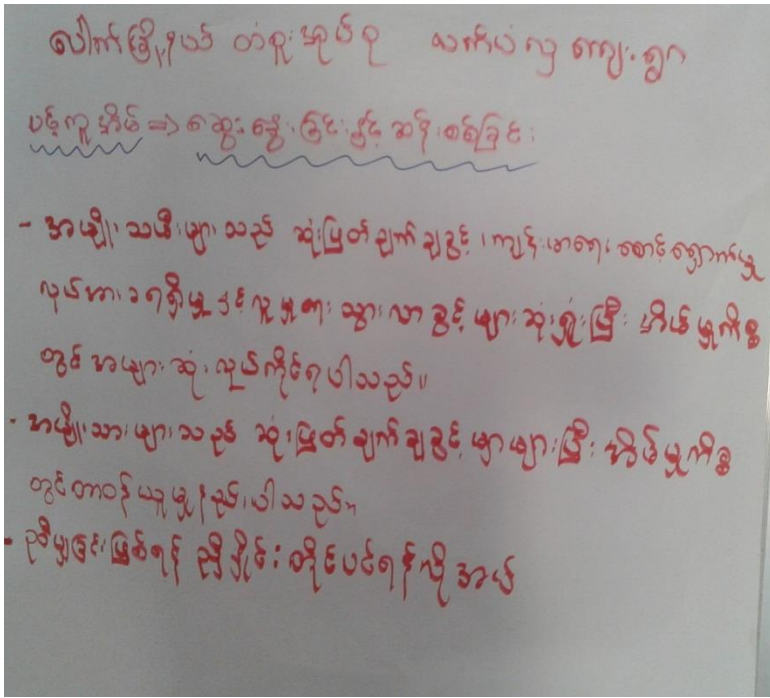 ပေါက်မြို့နယ် တံငူးအုပ်စု လက်ပံလှ ကျေးရွာ
ပင့်ကူအိမ် => ဆွေးနွေးခြင်းနှင့် ဆန်းစစ်ခြင်း
- အမျိုးသမီးများသည် ဆုံးဖြတ်ချက်ချခွင့်၊ ကျန်းမာရေးစောင့်ရှောက်မှု
လုပ်အားခရရှိမှုနှင့် လူမှုရေးသွားလာခွင့်များ ဆုံးရှုံးပြီး အိမ်မှုကိစ္စ
တွင် အများဆုံး လုပ်ကိုင်ရပါသည်။
- အမျိုးသားများသည် ဆုံးဖြတ်ချက်ချခွင့် များများပြီး အိမ်မှုကိစ္စ
တွင်တာဝန်ယူမှုနည်းပါသည်။
- ညီမျှခြင်းဖြစ်ရန် ညှိနှိုင်းတိုင်ပင်ရန်လိုအပ်